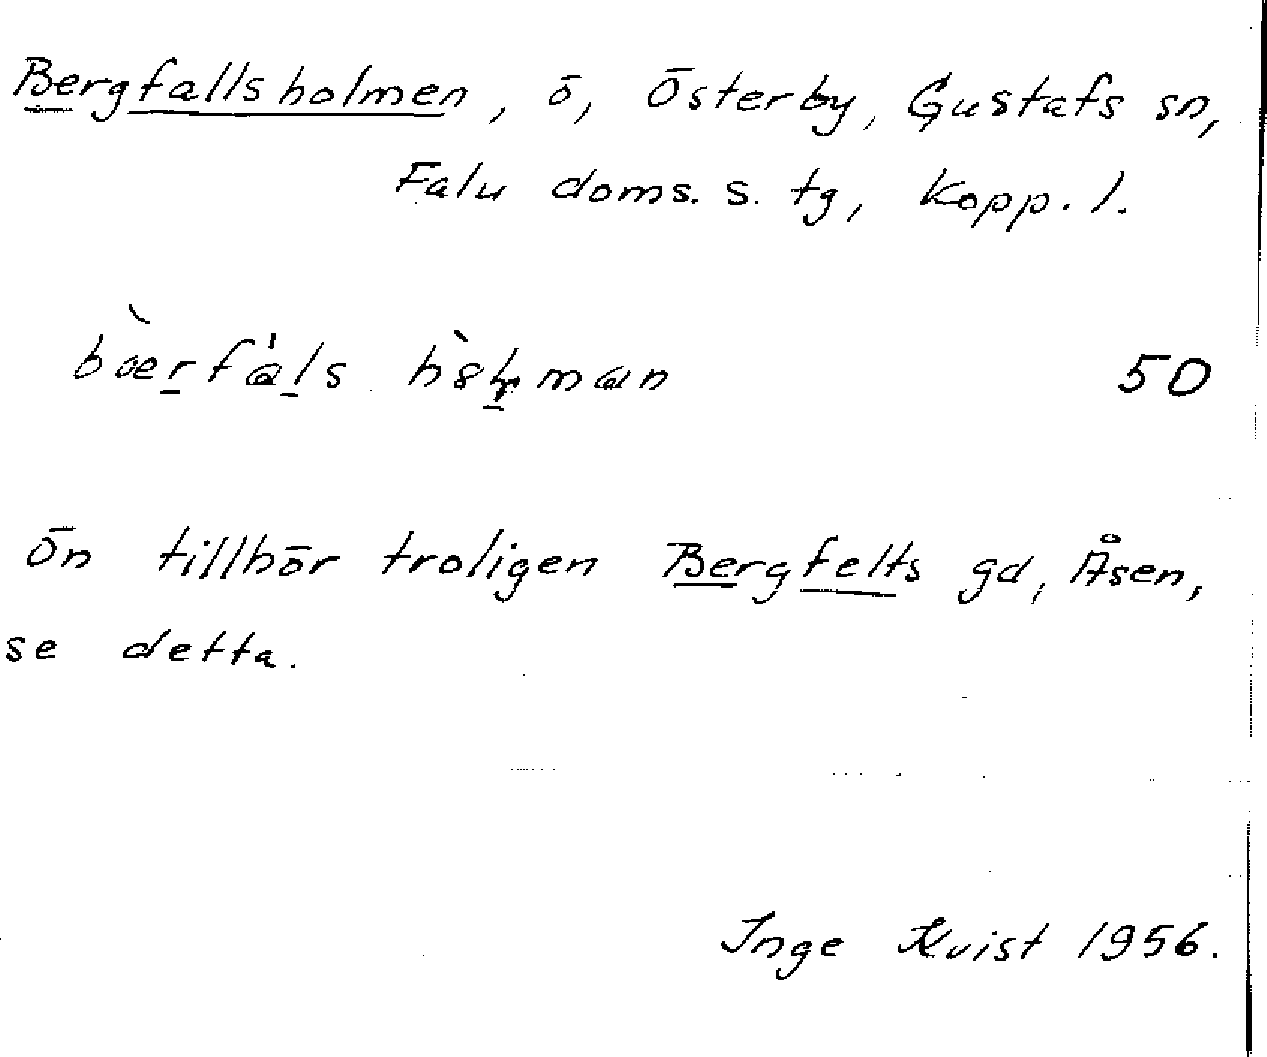 Bergfallsholmen, ö, Österby, Gustafs sn,
Falu doms. s. tg, Kopp. l.
50
Ön tillhör troligen Bergfelts gd, Åsen,
se detta.
Inge Kvist 1956.